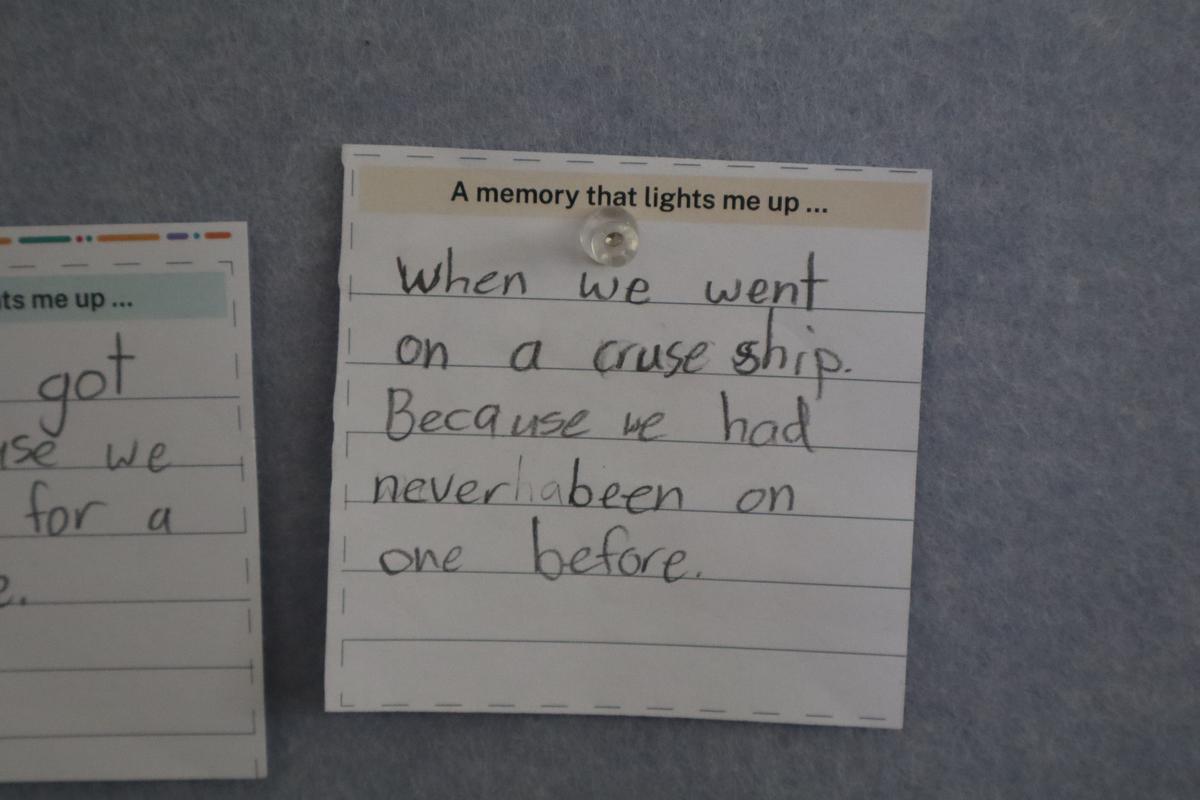 A memory that lights me up ...
When we went
on a cruse ship.
Because we had
never been on
one before.
ts me up ...
got
se we
for a
e.